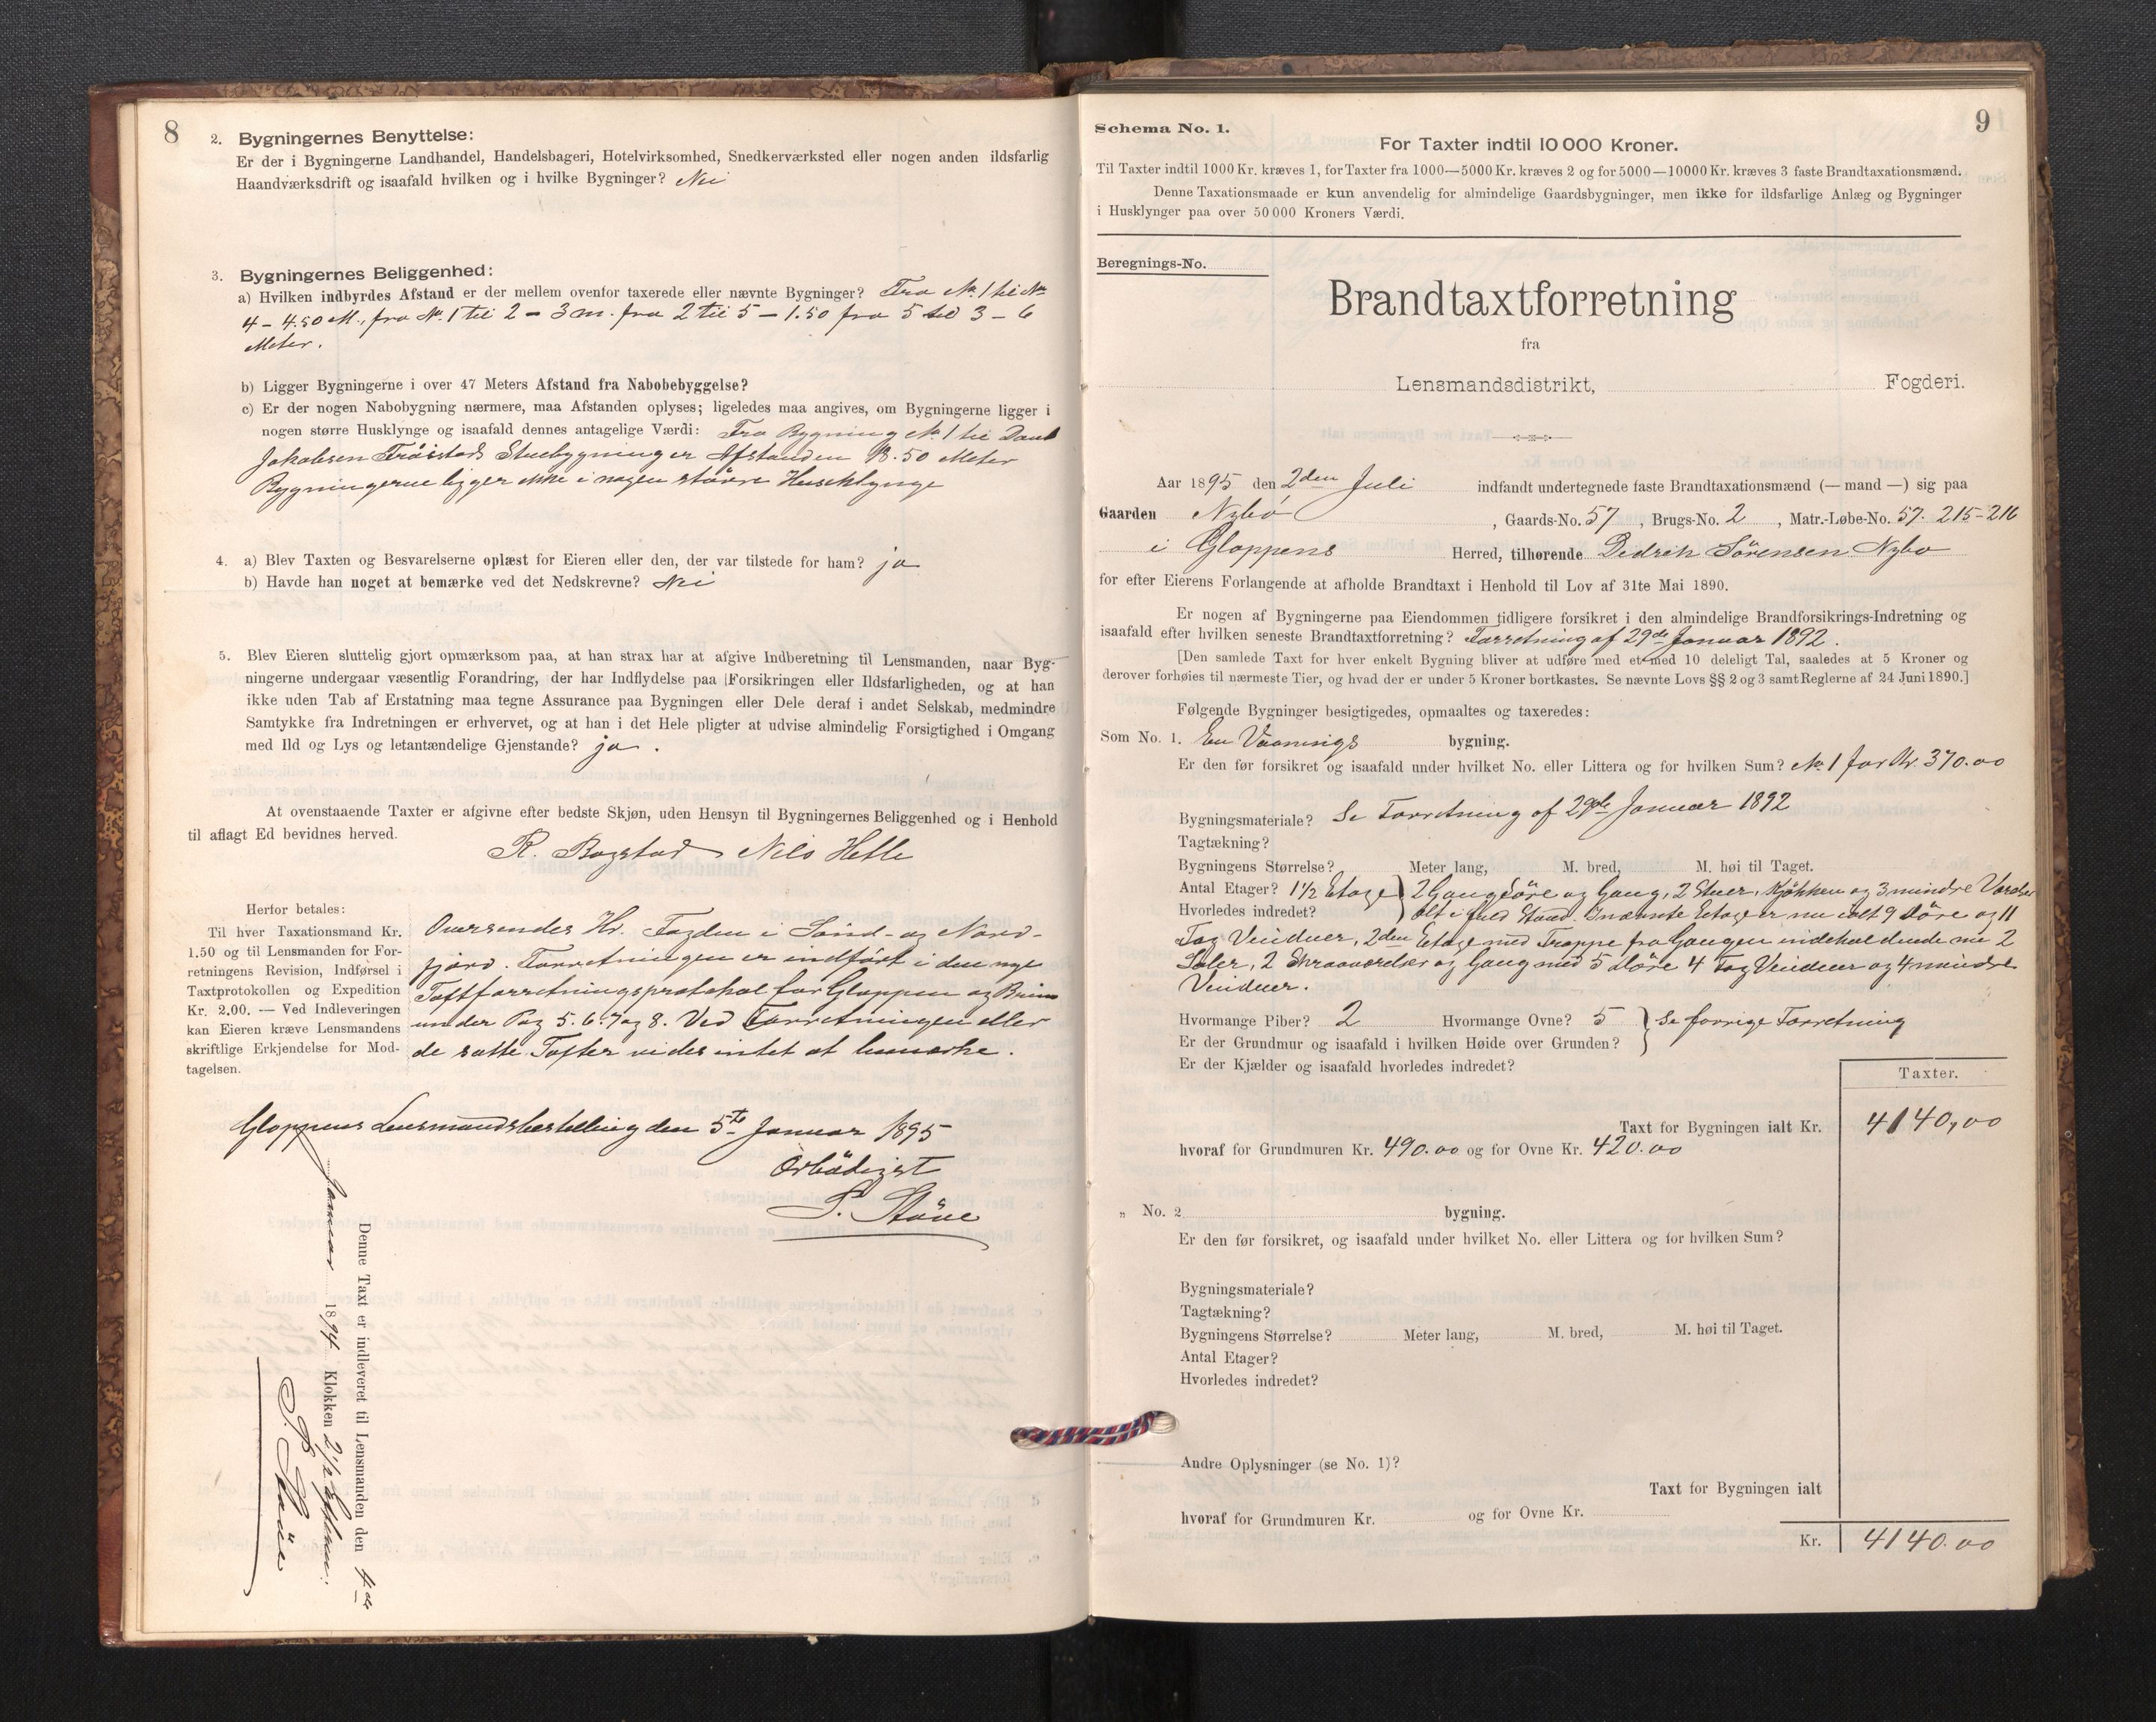 8
2. Bygningernes Benyttelse:
Er der i Bygningerne Landhandel, Handelsbageri, Hotelvirksomhed, Snedkerværksted eller nogen anden ildsfarlig
Haandværksdrift og isaafald hvilken og i hvilke Bygninger? Nei
3. Bygningernes Beliggenhed:
a) Hvilken indbyrdes Afstand er der mellem ovenfor taxerede eller nævnte Bygninger? Fra No. 1 til No.
4 - 4.50 M., fra No. 1 til 2 - 3 m. fra 2 til 5 - 1.50 fra 5 til 3 - 6
Meter.
b) Ligger Bygningerne i over 47 Meters Afstand fra Nabobebyggelse?
c) Er der nogen Nabobygning nærmere, maa Afstanden oplyses; ligeledes maa angives, om Bygningerne ligger i
nogen større Husklynge og isaafald dennes antagelige Værdi: Fra Bygning No. 1 til
Jakobsen Stuebygning er Afstanden 18.50 Meter
Bygningerne ligger ikke i nogen större Husklynge
4. a) Blev Taxten og Besvarelserne oplæst for Eieren eller den, der var tilstede for ham? ja
b) Havde han noget at bemærke ved det Nedskrevne? Nei
5. Blev Eieren sluttelig gjort opmærksom paa, at han strax har at afgive Indberetning til Lensmanden, naar Byg-
ningerne undergaar væsentlig Forandring, der har Indflydelse paa Forsikringen eller Ildsfarligheden, og at han
ikke uden Tab af Erstatning maa tegne Assurance paa Bygningen eller Dele deraf i andet Selskab, medmindre
Samtykke fra Indretningen er erhvervet, og at han i det Hele pligter at udvise almindelig Forsigtighed i Omgang
med Ild og Lys og letantændelige Gjenstande? ja .
At ovenstaaende Taxter er afgivne efter bedste Skjøn, uden Hensyn til Bygningernes Beliggenhed og i Henhold
til aflagt Ed bevidnes herved.
R. Bogstad Nils Hetle
Herfor betales:
Til hver Taxationsmand Kr.
1.50 og til Lensmanden for For-
retningens Revision, Indførsel i
Taxtprotokollen og Expedition
Kr. 2.00. — Ved Indleveringen
kan Eieren kræve Lensmandens
skriftlige Erkjendelse for Mod-
tagelsen.
Oversendes Hr. Fogden i Sönd- og Nord-
fjord. Forretningen er indfört i den nye
Taxtforretningsprotokol for Gloppen og Breim
under Pag 5. 6. 7 og 8. Ved Forretningen eller
de satte Taxter vides intet at bemærke.
Gloppens Lensmandsbestilling den 5te Januar 1895
Ærbödigst
S. Stöve
Denne Taxt er indleveret til Lensmanden den 4de
Januar 1894 Klokken 2 1/2 Efterm.
S. Stöve
9
Schema No. 1.
For Taxter indtil 10 000 Kroner.
Til Taxter indtil 1000 Kr. kræves 1, for Taxter fra 1000—5000 Kr. kræves 2 og for 5000—10000 Kr. kræves 3 faste Brandtaxationsmænd.
Denne Taxationsmaade er kun anvendelig for almindelige Gaardsbygninger, men ikke for ildsfarlige Anlæg og Bygninger
i Husklynger paa over 50 000 Kroners Værdi.
Beregnings-No.
Brandtaxtforretning
fra
Lensmandsdistrikt, Fogderi.
Aar 1895 den 2den Juli indfandt undertegnede faste Brandtaxationsmænd (— mand —) sig paa
Gaarden Nybö , Gaards-No. 57 , Brugs-No. 2 , Matr.-Løbe-No. 57. 215-216
i Gloppens Herred, tilhørende Didrik Sörensen Nybö
for efter Eierens Forlangende at afholde Brandtaxt i Henhold til Lov af 31te Mai 1890.
Er nogen af Bygningerne paa Eiendommen tidligere forsikret i den almindelige Brandforsikrings-Indretning og
isaafald efter hvilken seneste Brandtaxtforretning? Forretning af 29de Januar 1892.
[Den samlede Taxt for hver enkelt Bygning bliver at udføre med et med 10 deleligt Tal, saaledes at 5 Kroner og
derover forhøies til nærmeste Tier, og hvad der er under 5 Kroner bortkastes. Se nævnte Lovs §§ 2 og 3 samt Reglerne af 24 Juni 1890.]
Følgende Bygninger besigtigedes, opmaaltes og taxeredes:
Som No. 1. En Vaanings bygning.
Er den før forsikret og isaafald under hvilket No. eller Littera og for hvilken Sum? No. 1 for Kr. 370.00
Bygningsmateriale? Se Forretning af 29de Januar 1892
Tagtækning?
Bygningens Størrelse? Meter lang, M. bred, M. høi til Taget.
Antal Etager? 1 1/2 Etage } 2 Gangdöre og Gang, 2 Stuer, Kjökken og 3 mindre Værelser
Hvorledes indredet? alt i fuld Stand. I nævnte Etage er nu ialt 9 Döre og 11
Fag Vinduer, 2den Etage med Trappe fra Gangen indeholdende nu 2
Saler, 2 Skraaværelser og Gang med 5 Döre 4 Fag Vinduer og 4 mindre
Vinduer.
Hvormange Piber? 2 Hvormange Ovne? 5 } Se forrige Forretning
Er der Grundmur og isaafald i hvilken Høide over Grunden?
Er der Kjælder og isaafald hvorledes indredet?
Taxter.
Taxt for Bygningen ialt Kr. 4140,00
hvoraf for Grundmuren Kr. 490.00 og for Ovne Kr. 420.00
„ No. 2 bygning.
Er den før forsikret, og isaafald under hvilket No. eller Littera og for hvilken Sum?
Bygningsmateriale?
Tagtækning?
Bygningens Størrelse? Meter lang, M. bred, M. høi til Taget.
Antal Etager?
Hvorledes indredet?
Andre Oplysninger (se No. 1)?
Taxt for Bygningen ialt
hvoraf for Grundmuren Kr. og for Ovne Kr.
Kr. 4140.00